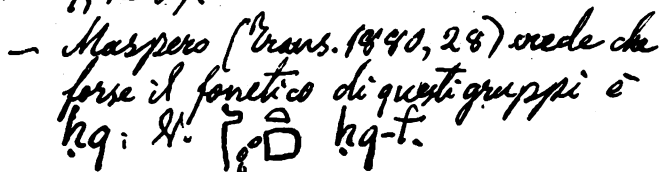 – Maspero (Trans. 1890, 28) vede che
forse il fonetico di questi gruppi è
ḥq: V. ḥq-t.